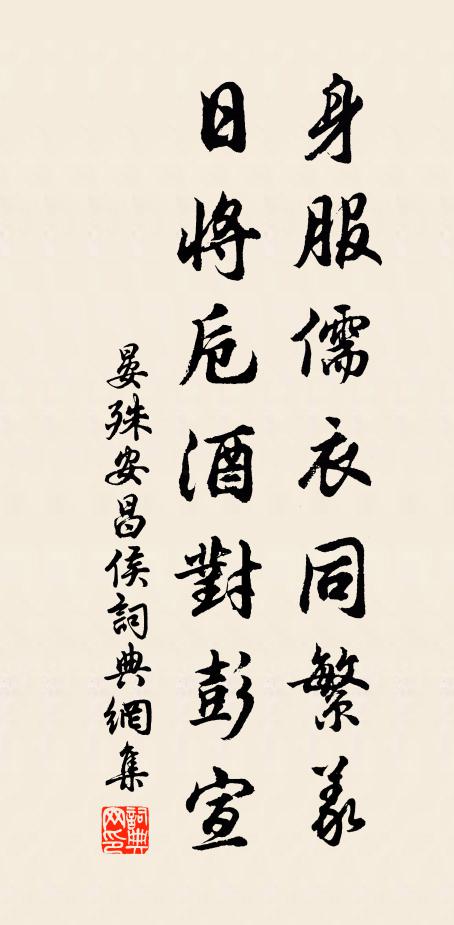 身服儒衣同繁義
日將卮酒對彭宣
晏殊安昌侯詞典網集
詞典網印